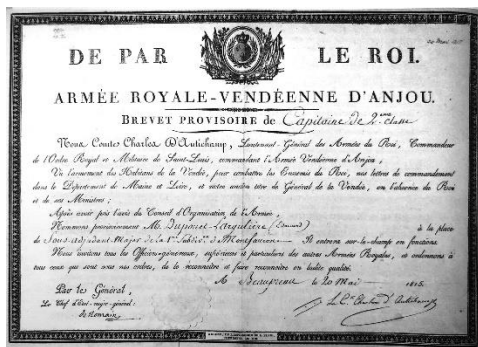 20 Mai 1815
DE PAR LE ROI.
ARMÉE ROYALE-VENDÉENNE D'ANJOU.
BREVET PROVISOIRE de Capitaine de 2eme classe
Nous Comte Charles D'Autichamp, Lieutenant-Général des Armées du Roi, Commandeur
de l'Ordre Royal et Militaire de Saint-Louis, commandant l'Armée Vendéenne d'Anjou,
Vu l'armement des Habitans de la Vendée, pour combattre les Ennemis du Roi, nos lettres de commandement
dans le Département de Maine et Loire, et notre ancien titre de Général de la Vendée, en l'absence du Roi
et de ses Ministres;
Après avoir pris l'avis du Conseil d'Organisation de l'Armée,
Nommons provisoirement M. Duponcel Larguilière (Edouard) à la place
de Sous-adjudant Major de la 1re Subdivon d'Montfaucon Il entrera sur-le-champ en fonctions.
Nous invitons tous les Officiers-généraux, supérieurs et particuliers des autres Armées Royales, et ordonnons à
tous ceux qui sont sous nos ordres, de le reconnaître et faire reconnaître en ladite qualité.
A Beaupreau le 20 Mai 1815.
Par le Général,
Le Chef d'Etat-major-général:
de Romain
Le Cte Charles d'Autichamp